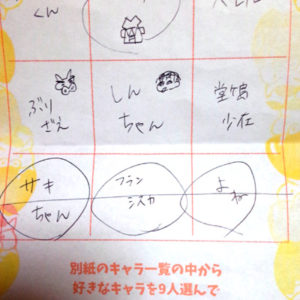 くん
ぶり
ざえ
しん
ちゃん
堂ヶ島
少在
サキ
ちゃん
フラン
シスカ
よね
別紙のキャラ一覧の中から
好きなキャラを9人選んで